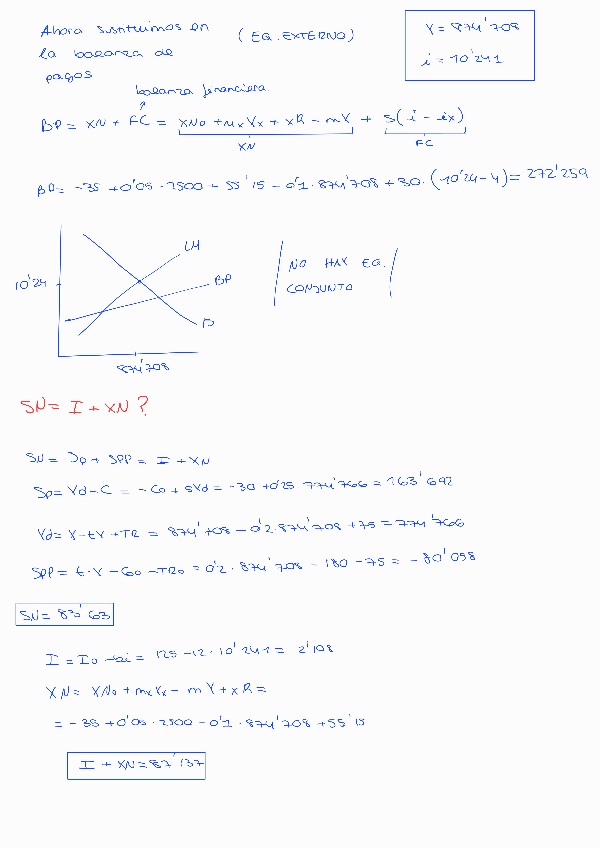 Ahora sustituimos en
la balanza de
pagos
(EQ. EXTERNO)
Y = 874'708
i = 10'241
balanza financiera
BP = XN + FC = XN0 + mxYx + xR - mY + s(i - ix)
XN
FC
BP = -35 + 0'05 · 2500 + 55'15 - 0'1 · 874'708 + 30 · (10'24 - 4) = 272'259
LM
BP
10'24
D
874'708
NO HAY EQ.
CONJUNTO
SN = I + XN?
SN = Sp + SPP = I + XN
Sp = Yd - C = -C0 + sYd = -30 + 0'25 · 774'766 = 163'692
Yd = Y - tY + TR = 874'708 - 0'2 · 874'708 + 75 = 774'766
SPP = t·Y - G0 - TR0 = 0'2 · 874'708 - 180 - 75 = -80'058
SN = 83'63
I = I0 - ai = 125 - 12 · 10'241 = 2'108
XN = XN0 + mxYx - mY + xR =
= -35 + 0'05 · 2500 - 0'1 · 874'708 + 55'15
I + XN = 87'137